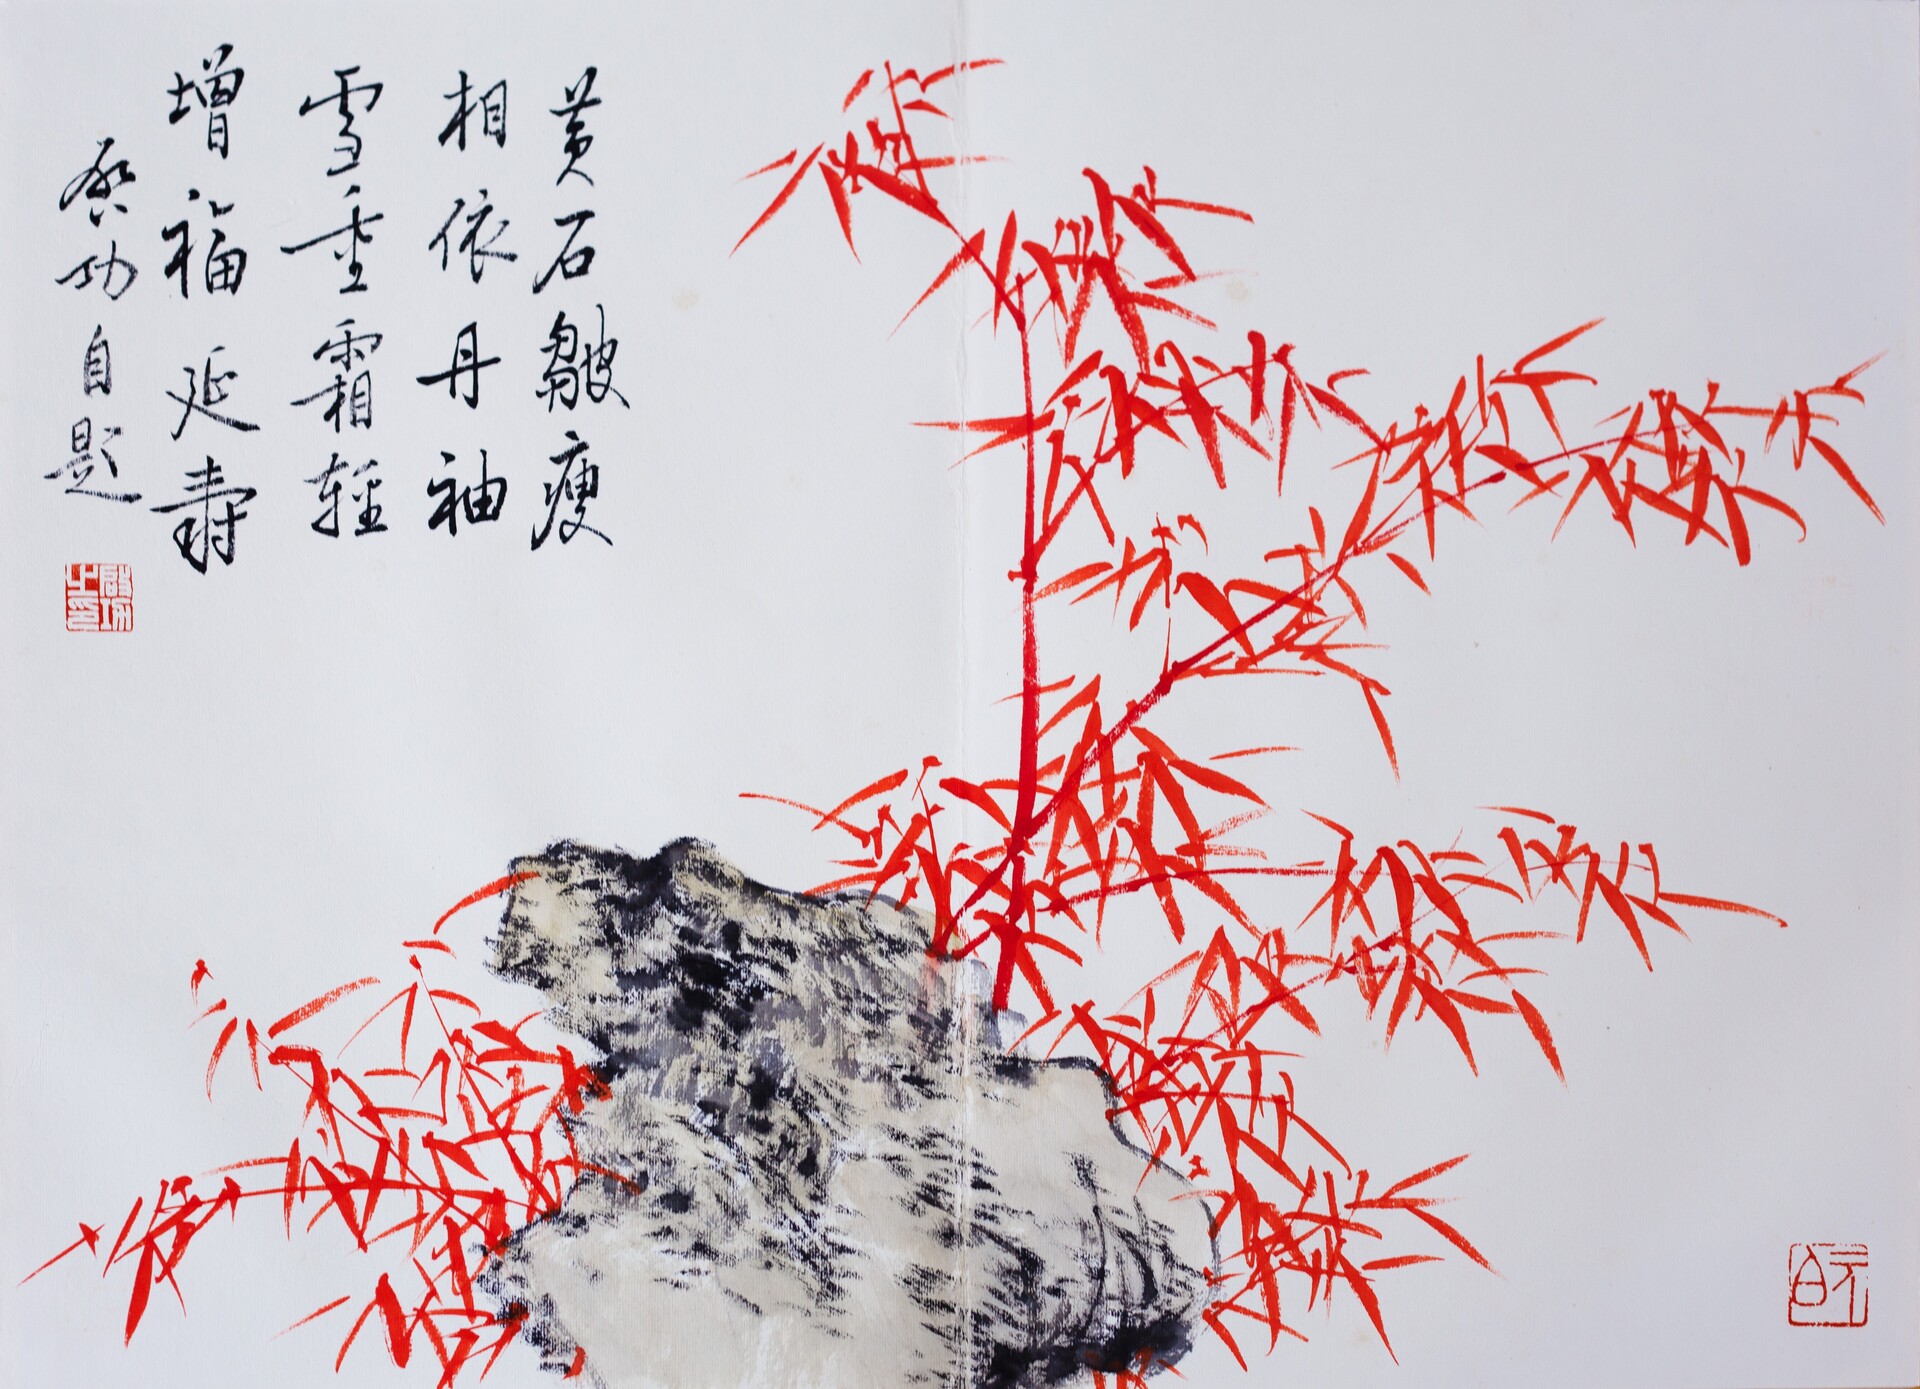 黄石皺瘦
相依丹袖
雪重霜輕
增福延壽
啓功自題
啟功之印
元白